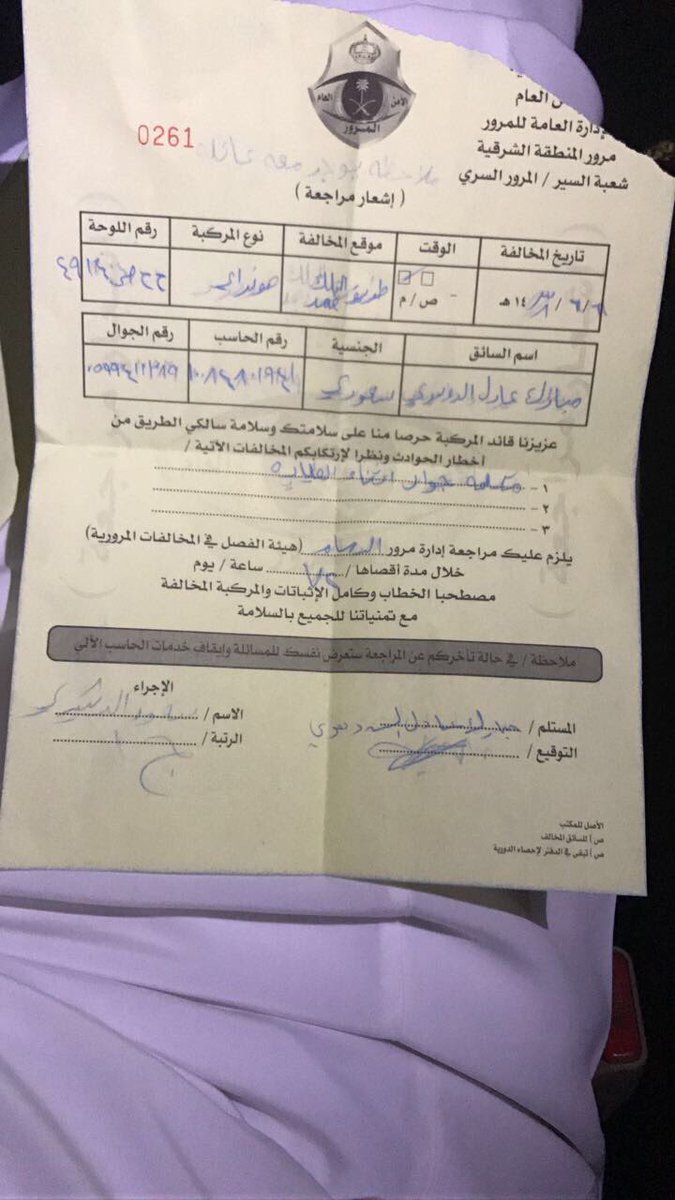 ن العام
لإدارة العامة للمرور
مرور المنطقة الشرقية
شعبة السير / المرور السري
الأمن العام
المرور
0261
ملاحظه يوجد معه عائله
( إشعار مراجعة )
تاريخ المخالفة الوقت موقع المخالفة نوع المركبة رقم اللوحة
٦/٦ / ١٤٣٨ هـ ص / م طريق الملك فهد هونداي
اسم السائق الجنسية رقم الحاسب رقم الجوال
مبارك عادل الدوسري سعودي
عزيزنا قائد المركبة حرصا منا على سلامتك وسلامة سالكي الطريق من
أخطار الحوادث ونظرا لإرتكابكم المخالفات الآتية /
١ - مكلمه جوال اثناء القياده
٢ -
٣ -
يلزم عليك مراجعة إدارة مرور الدمام (هيئة الفصل في المخالفات المرورية)
خلال مدة أقصاها / ٧٢ ساعة / يوم
مصطحبا الخطاب وكامل الإثباتات والمركبة المخالفة
مع تمنياتنا للجميع بالسلامة
ملاحظة / في حالة تأخركم عن المراجعة ستعرض نفسك للمسائلة وإيقاف خدمات الحاسب الآلي
المستلم / مبارك عادل الدوسري
التوقيع /
الإجراء
الاسم /
الرتبة /
الأصل للمكتب
ص / للسائق المخالف
ص / تبقى في الدفتر لإحصاء الدورية